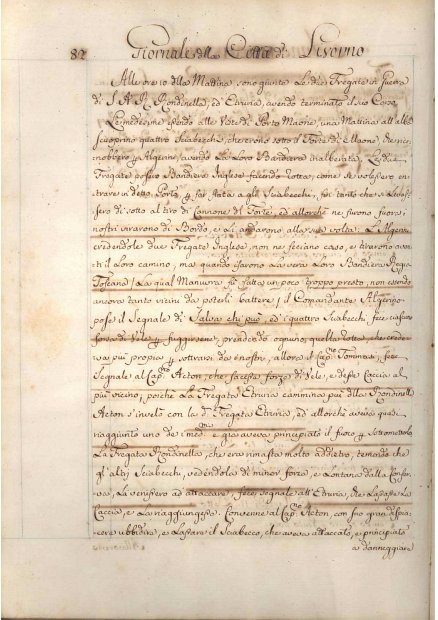 82 Giornale della Città di Livorno
Alle ore 10 della Mattina sono giunte Le due Fregate di guerra
di S. A. R. Rondinella, ed Etruria, avendo terminato il suo Corso
Le medesime essendo alle Viste di Porto Maone, una Mattina all'alba
scuoprirno quattro Sciabecchi, che erono sotto il Forte di Maone, che rico-
nobbero Algerini, avendo La Loro Bandiera inalberata, Le due
Fregate Bandiera Inglese facendo rotta, come se volessero en-
trare in detto Porto, p. far stata agli Sciabecchi, fin tanto che si Levas-
sero di sotto al tiro di Cannone di Forte, ed allorchè ne furono fuora,
nostri virarono di Bordo, e Li andarono alla sua volta: L'Algerini
credendole due Fregate Inglese, non ne feciano caso, e tiravono avan-
ti il loro camino, ma quando La vera Loro Bandiera Regia
Toscana | La qual Manuvra fù fatta un poco troppo presto, non essendo
ancora tanto vicini da poterli battere | il Comandante Algerino
pose il Segnale di Salva chi può, ed i quattro Sciabecchi fece ciascuno
forza di Vele p. fuggirsene, prendendo ognuno, quella rotta, che crede-
va più propia p. sottrarsi da i nostri, allora il Cap.no Tommasi, fece
Segnale al Cap.no Acton, che facesse forza di Vele, e desse Caccia al
più vicino, poiche La Fregata Etruria cammina più della Rondinella
Acton s'invelò con la d.a Fregata Etruria, ed allorchè aveva quasi
raggiunto uno de i med.mi e già aveva principiato il fuoco p. sottometterlo
La Fregata Rondinella, che era rimasta molto addietro, temendo che
gl'altri Sciabecchi, vedendola di minor forza, e Lontana dalla Conser-
va, La venissero ad attaccare, fece segnale all'Etruria, che Lasciasse La
Caccia, e La riaggiungesse: Convenne al Cap.no Acton, con suo gran dispia-
cere ubbidire, e Lasciare il Sciabecco, che aveva attaccato, e principiato
a danneggiare